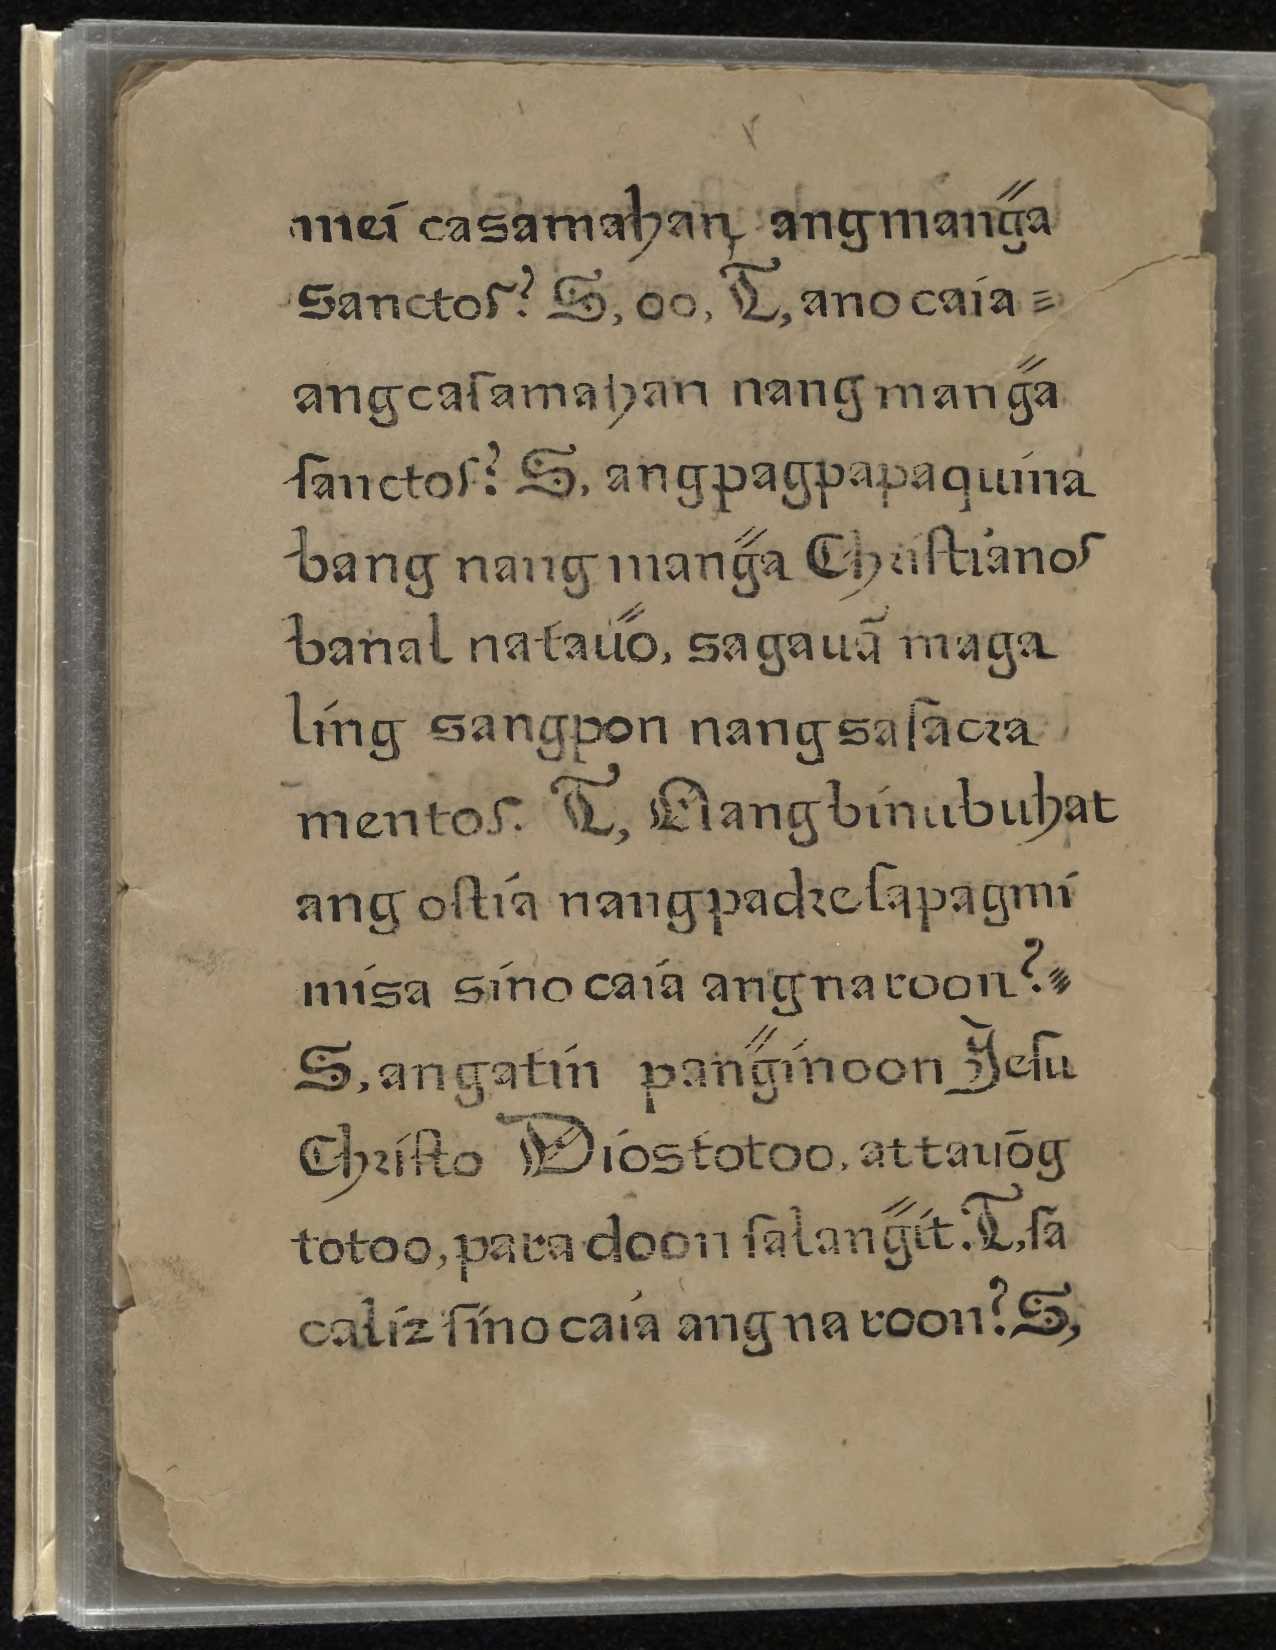 mei casamahan ang mang̃a
Sanctoſ? S, oo, T, ano caia =
ang caſamahan nang mang̃a
ſanctoſ? S, ang pagpapaquina
bang nang mang̃a Chriſtianoſ
banal na tauo, sa gauã maga
ling sangpon nang sa ſacra
mentoſ. T, Nang binubuhat
ang oſtia nang padre ſa pagmi
misa sino caia ang naroon? =
S, ang atin pang̃inoon Jeſu
Chriſto Dios totoo, at tauõg
totoo, para doon ſa lang̃it. T, ſa
caliz ſino caia ang na roon? S,